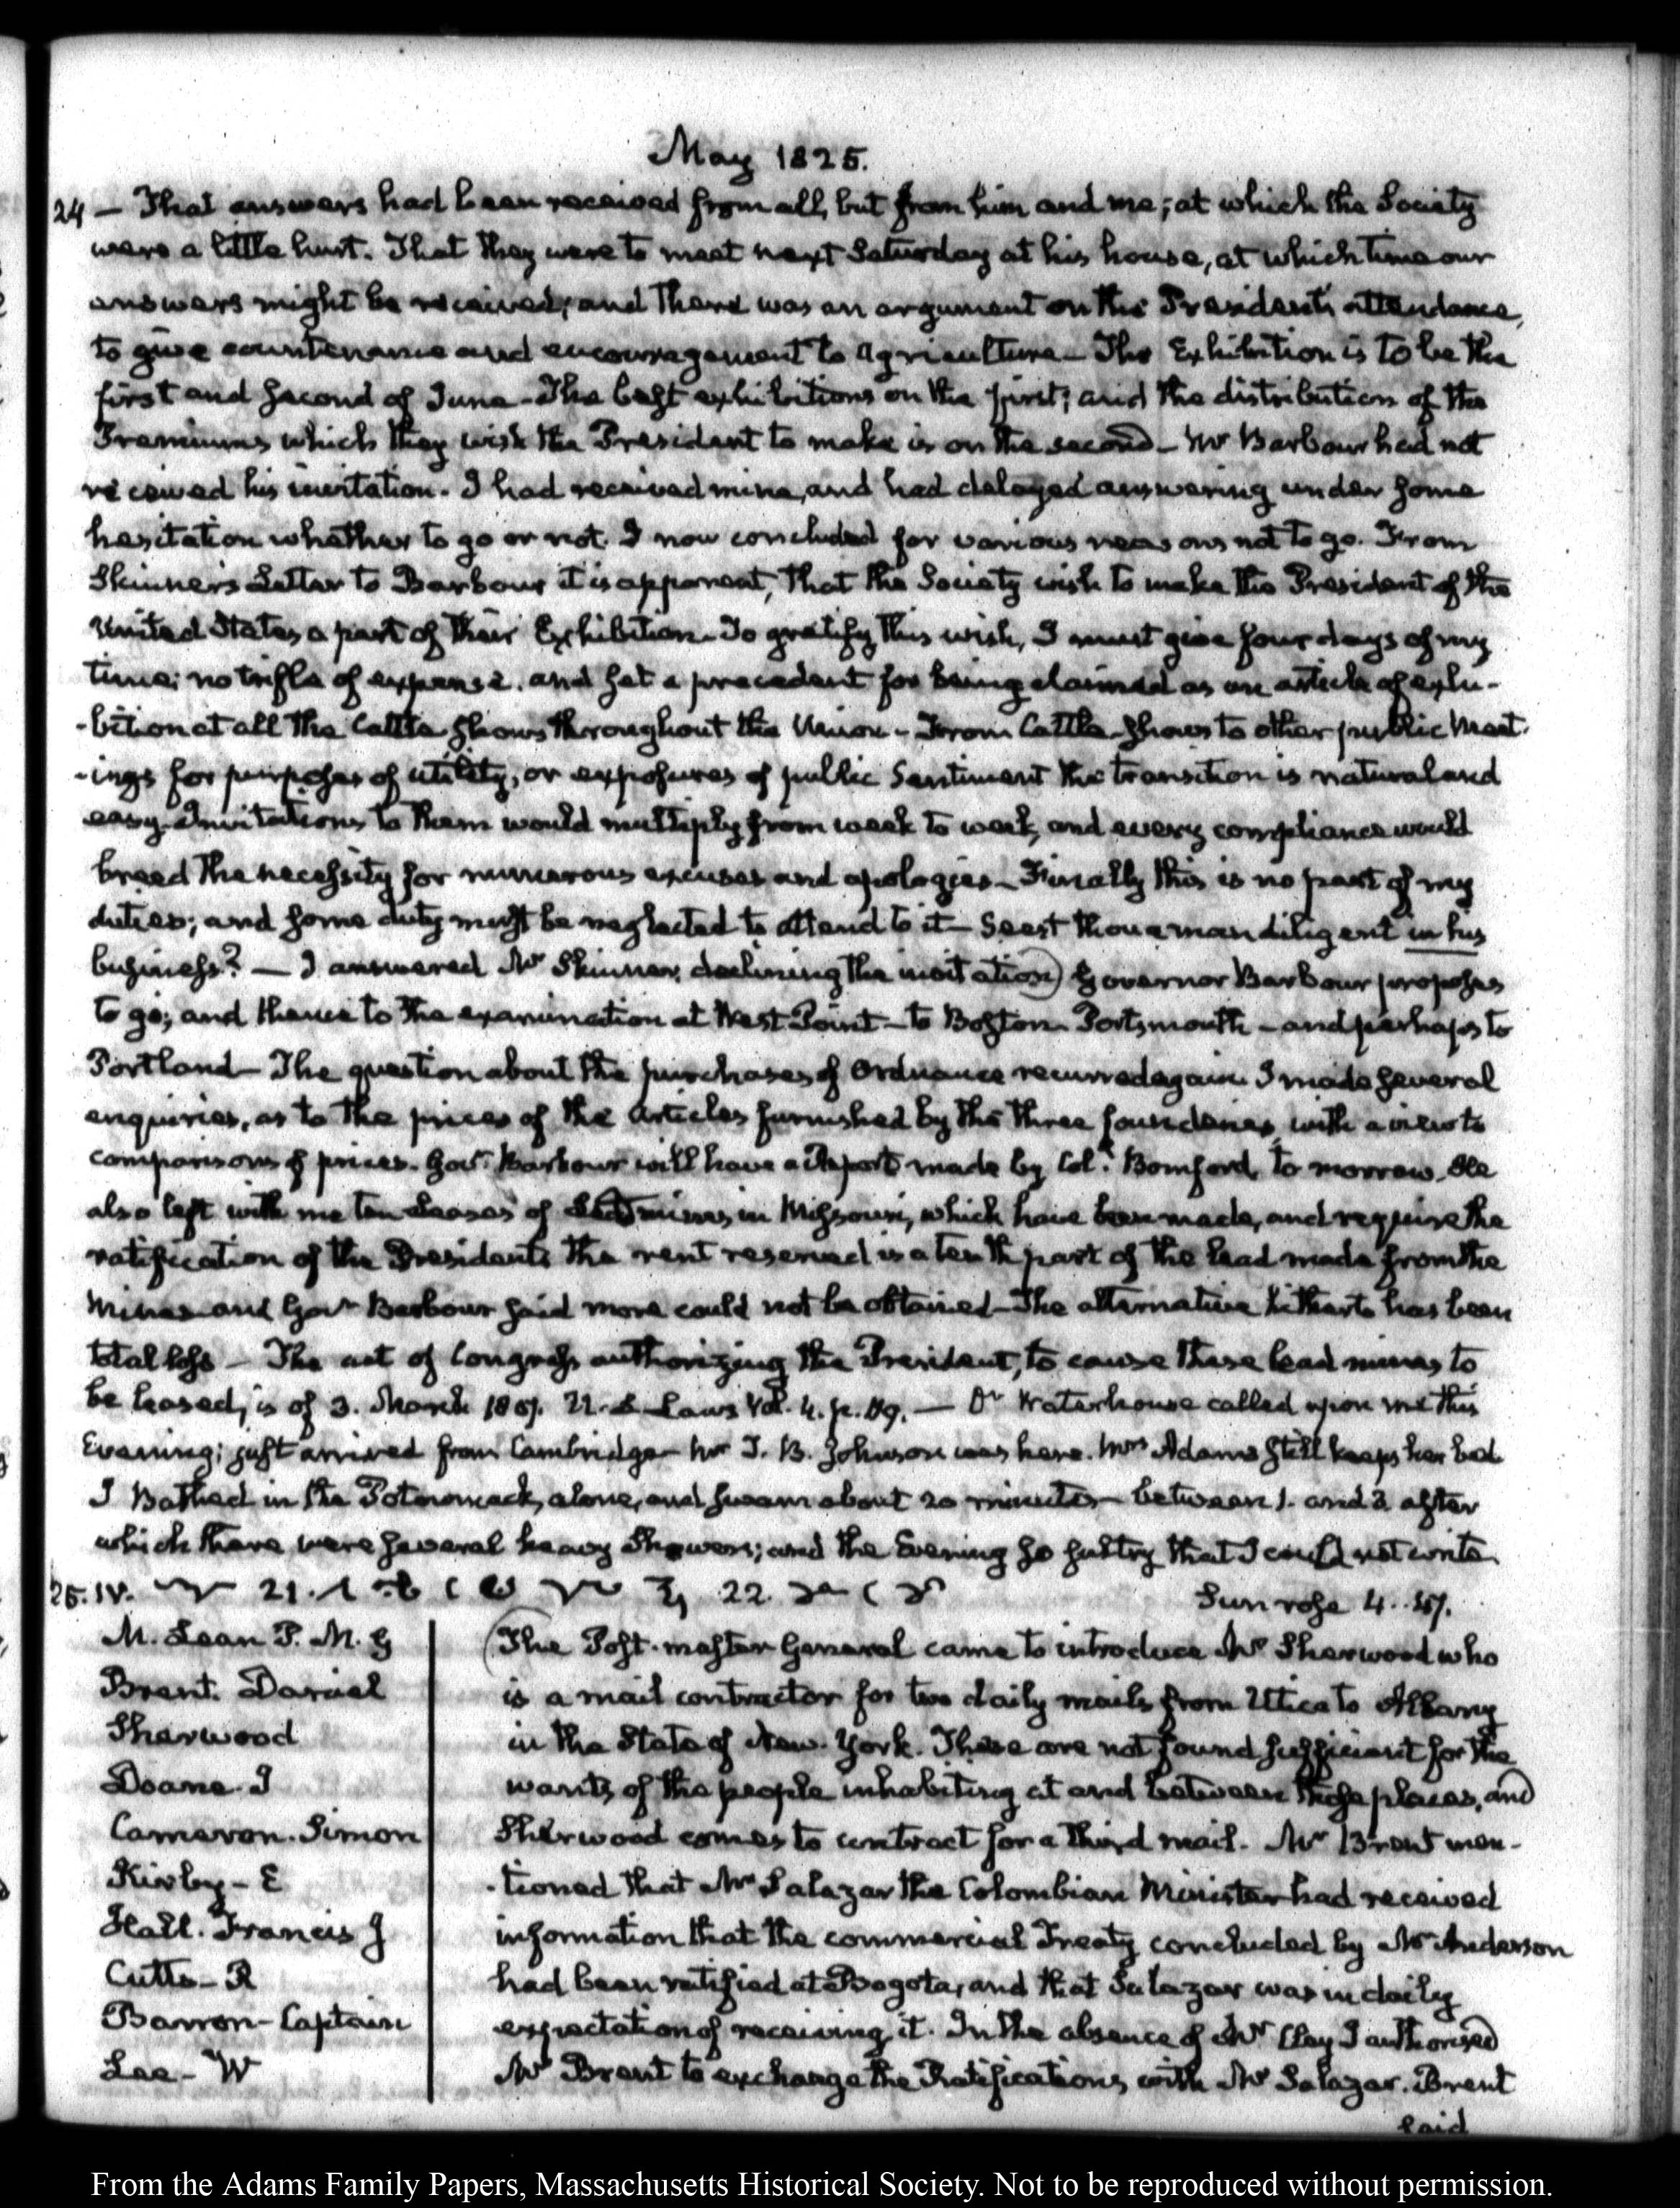 May 1825.
24 — That answers had been received from all, but from him and me; at which the Society
were a little hurt. That they were to meet next Saturday at his house, at which time our
answers might be received; and there was an argument on the Presidents attendance,
to give countenance and encouragement to Agriculture — The Exhibition is to be the
first and second of June — The best exhibitions on the first; and the distribution of the
Premiums which they wish the President to make is on the second — Mr Barbour had not
received his invitation. I had received mine, and had delayed answering under some
hesitation whether to go or not. I now concluded for various reasons not to go. From
Skinner's Letter to Barbour it is apparent, that the Society wish to make the President of the
United States a part of their Exhibition — To gratify this wish, I must give four days of my
time; no trifle of expense, and set a precedent for being claimed as an article of exhi-
-bition at all the Cattle Shows throughout the Union — From Cattle-Shows to other public Meet-
-ings for purposes of utility, or exposures of public Sentiment the transition is natural and
easy. Invitations to them would multiply from week to week, and every compliance would
breed the necessity for numerous excuses and apologies — Finally this is no part of my
duties; and some duty must be neglected to attend to it — Seest thou a man diligent in his
business? — I answered Mr Skinner, declining the invitation) Governor Barbour proposes
to go; and thence to the examination at West-Point — to Boston Portsmouth — and perhaps to
Portland — The question about the purchases of Ordnance recurred again. I made several
enquiries, as to the prices of the Articles furnished by the three founderies, with a view to
comparisons of prices. Govr Barbour will have a Report made by Coll. Bomford, to morrow. He
also left with me ten Leases of Lead mines in Missouri, which have been made, and require the
ratification of the President. The rent reserved is a tenth part of the lead made from the
Mines and Govr Barbour said more could not be obtained — The alternative hitherto has been
total loss — The act of Congress authorizing the President, to cause these lead mines to
be leased, is of 3. March 1807. U.S. Laws Vol. 4. p. 119. — Dr Waterhouse called upon me this
Evening; just arrived from Cambridge — Mr T. B. Johnson was here. Mrs Adams still keeps her bed.
I Bathed in the Potomack, alone, and swam about 20 minutes — between 1. and 2 after
which there were several heavy Showers; and the Evening so sultry that I could not write.
25. IV. 21. 22. Sun rose 4..47.
M.Lean P. M. G
Brent. Daniel
Sherwood
Doane. J
Cameron. Simon
Kirby — E
Hall. Francis J
Cutts — R
Barron — Captain
Lee — W
(The Post-master General came to introduce Mr Sherwood who
is a mail contractor for two daily mails from Utica to Albany
in the State of New-York. These are not found sufficient for the
wants of the people inhabiting at and between those places, and
Sherwood comes to contract for a third mail. Mr Brent men-
-tioned that Mr Salazar the Colombian Minister had received
information that the commercial Treaty concluded by Mr Anderson
had been ratified at Bogota, and that Salazar was in daily
expectation of receiving it. In the absence of Mr Clay I authorised
Mr Brent to exchange the Ratifications with Mr Salazar. Brent
said
From the Adams Family Papers, Massachusetts Historical Society. Not to be reproduced without permission.